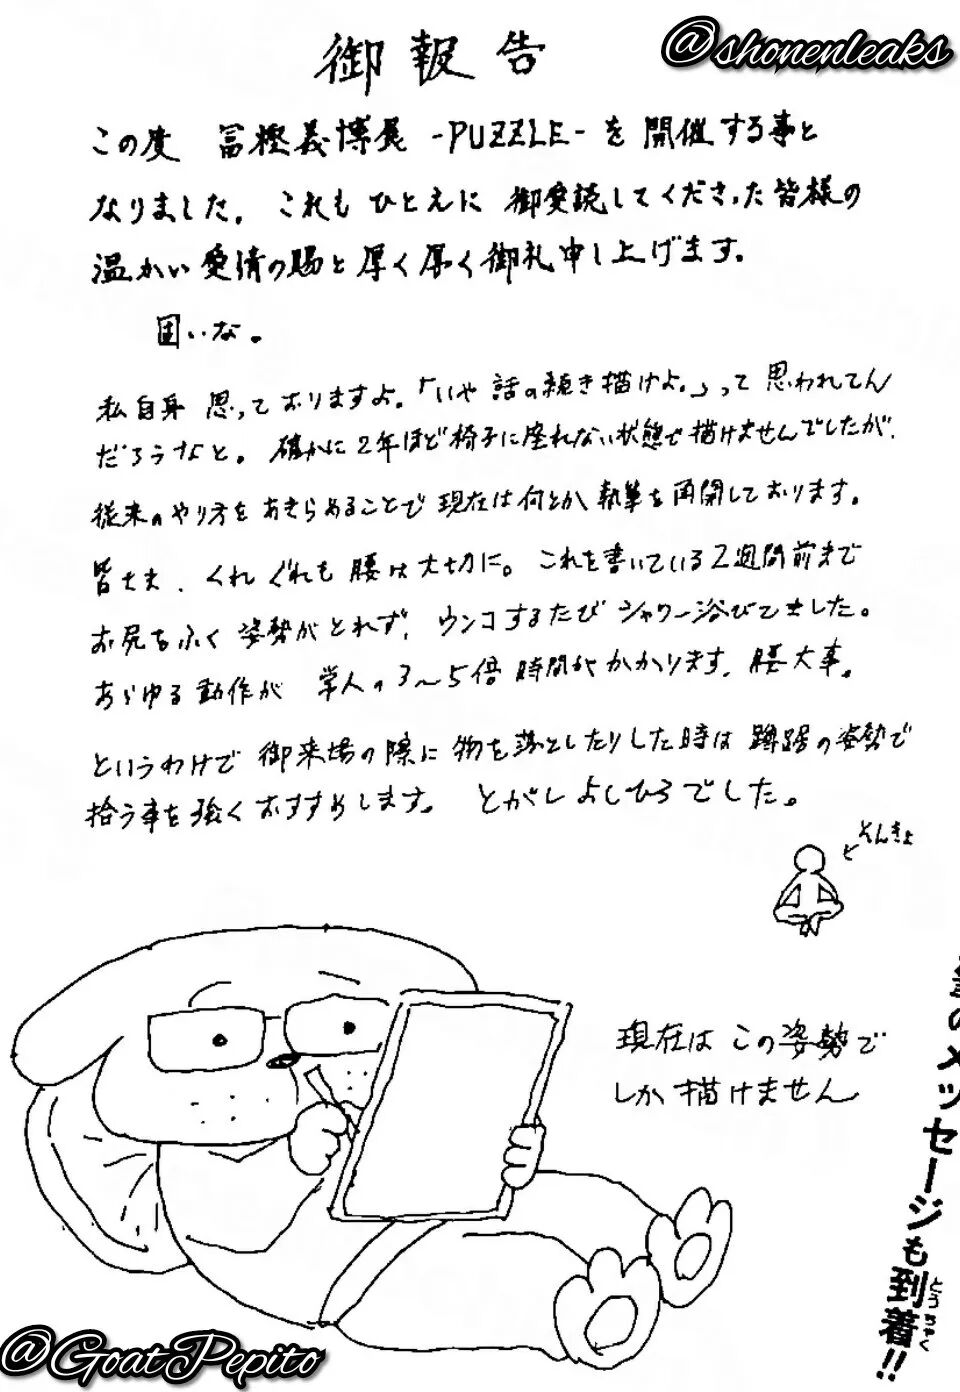 @shonenleaks
御報告
この度 冨樫義博展 -PUZZLE- を開催する事と
なりました。これもひとえに御愛読してくださった皆様の
温かい愛情の賜と厚く厚く御礼申し上げます。
固いな。
私自身思っておりますよ。「いや話の続き描けよ。」って思われてん
だろうなと。確かに2年ほど椅子に座れない状態で描けませんでしたが、
従来のやり方をあきらめることで現在は何とか執筆を再開しております。
皆さま、くれぐれも腰は大切に。これを書いている2週間前まで
お尻をふく姿勢がとれず、ウンコするたびシャワー浴びてました。
あらゆる動作が 常人の3〜5倍時間がかかります。腰大事。
というわけで御来場の際に物を落としたりした時は蹲踞の姿勢で
拾う事を強くおすすめします。とがしよしひろでした。
そんきょ
現在はこの姿勢で
しか描けません
のメッセージも到着!!
とうちゃく
@GoatPepito